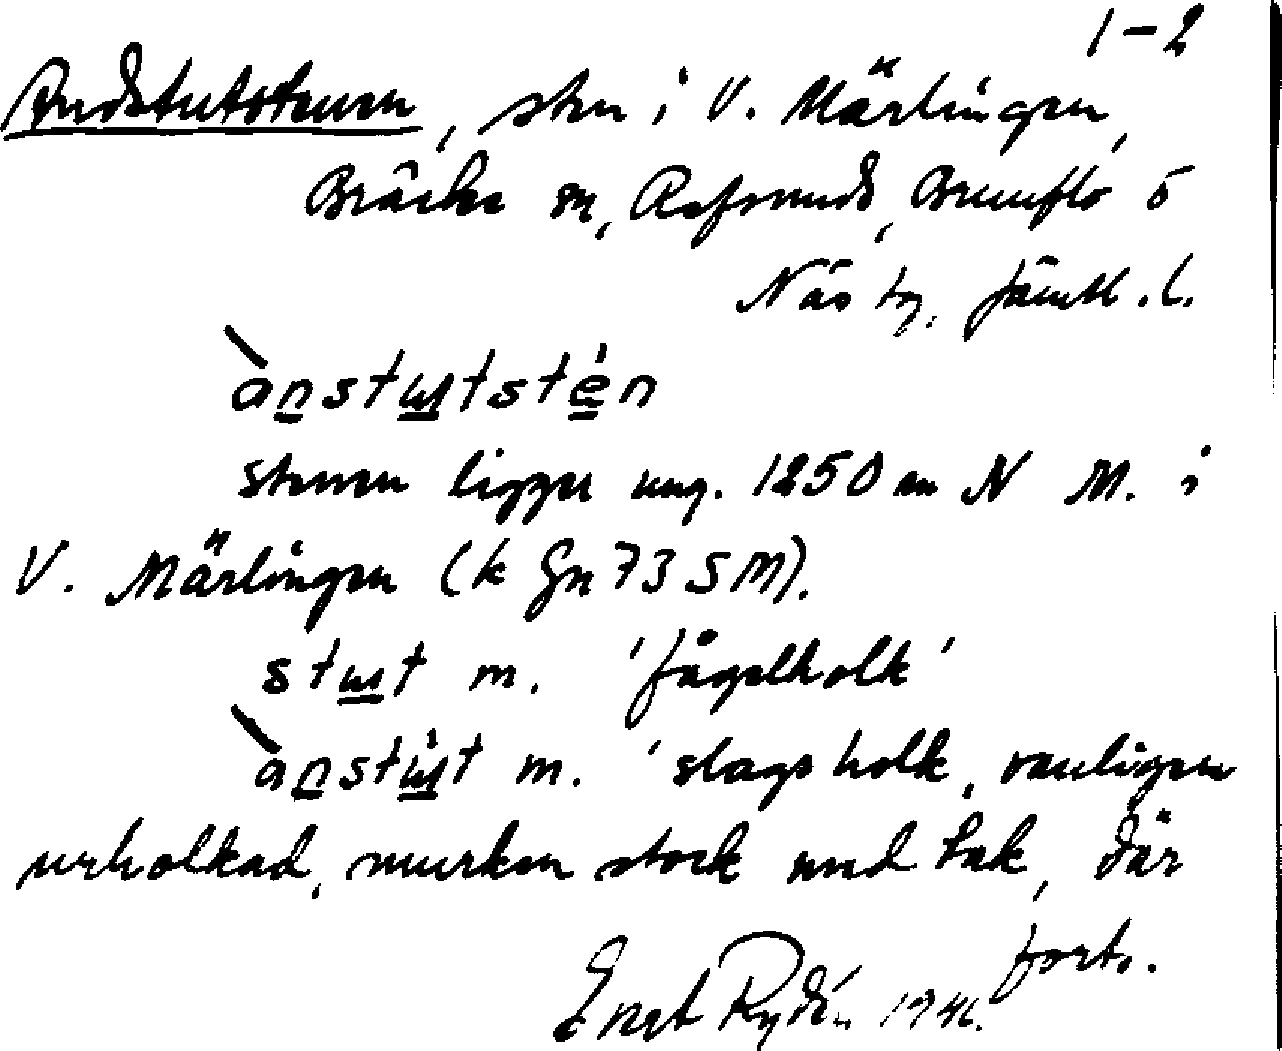 1-2
Andstutstenen, sten i V. Märlingen,
Bräcke sn, Refsunds, Brunflo o
Näs tg, Jämtl. l.
ànstutstén
stenen ligger ung. 1250 m N M. i
V. Märlingen (k Gn 73 S M).
stut m. 'fågelholk'
ànstút m. 'slags holk, vanligen
urholkad, murken stock med tak, där
forts.
Ernst Rydén 1946.